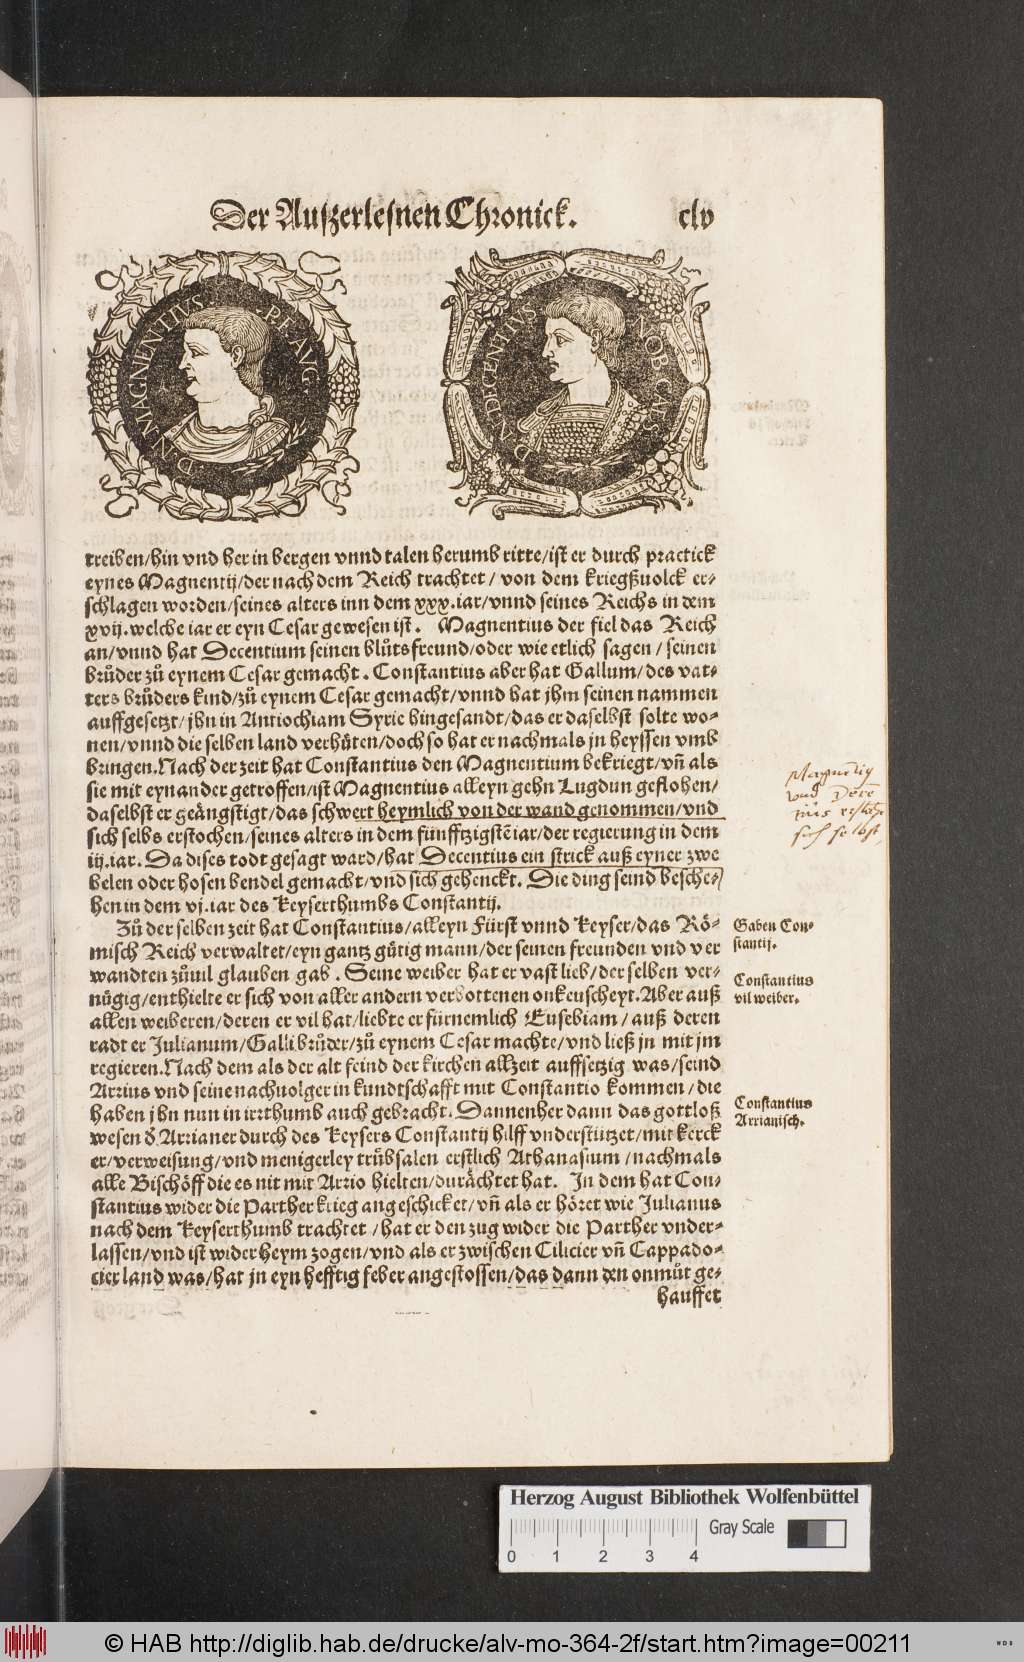 Der Auszerlesnen Chronick. clv
D N MAGNENTIVS P F AVG
D N DECENTIVS NOB CAES
treiben/hin vnd her in bergen vnnd talen herumb ritte/ist er durch practick
eynes Magnentij/der nach dem Reich trachtet/ von dem kriegßuolck er⸗
schlagen worden/seines alters inn dem xxx.iar/vnnd seines Reichs in dem
xvij.welche iar er eyn Cesar gewesen ist. Magnentius der fiel das Reich
an/vnnd hat Decentium seinen blůtsfreund/oder wie etlich sagen/ seinen
brůder zů eynem Cesar gemacht. Constantius aber hat Gallum/des vat⸗
ters brůders kind/zů eynem Cesar gemacht/vnnd hat jhm seinen nammen
auffgesetzt/jhn in Antiochiam Syrie hingesandt/das er daselbst solte wo⸗
nen/vnnd die selben land verhüten/doch so hat er nachmals jn heyssen vmb
bringen.Nach der zeit hat Constantius den Magnentium bekriegt/vñ als
sie mit eynander getroffen/ist Magnentius alleyn gehn Lugdun geflohen/
daselbst er geängstigt/das schwert heymlich von der wand genommen/vnd
sich selbs erstochen/seines alters in dem fünfftzigstẽ iar/der regierung in dem
iij.iar. Da dises todt gesagt ward/hat Decentius ein strick auß eyner zwe
helen oder hosen bendel gemacht/vnd sich gehenckt. Die ding seind besche⸗
hen in dem vj.iar des Keyserthumbs Constantij.
Magnẽtiq
vnd Dece
tius
sich selbst
Zů der selben zeit hat Constantius/alleyn Fürst vnnd Keyser/das Rö⸗
misch Reich verwaltet/eyn gantz gütig mann/der seinen freunden vnd ver
wandten zůuil glauben gab. Seine weiber hat er vast lieb/der selben ver⸗
nügig/enthielte er sich von aller andern verbottenen onkeuscheyt.Aber auß
allen weiberen/deren er vil hat/liebte er fürnemlich Eusebiam/ auß deren
radt er Julianum/Galli brůder/zů eynem Cesar machte/vnd ließ jn mit jm
regieren.Nach dem als der alt feind der kirchen allzeit auffsetzig was/seind
Arrius vnd seine nachuolger in kundtschafft mit Constantio kommen/die
haben jhn nun in irrthumb auch gebracht. Dannenher dann das gottloß
wesen d̾ Arrianer durch des Keysers Constantij hilff vnderstützet/mit kerck
er/verweisung/vnd menigerley trübsalen erstlich Athanasium/nachmals
alle Bischöff die es nit mit Arrio hielten/durächtet hat. In dem hat Con⸗
stantius wider die Parther krieg angeschicket/vñ als er höret wie Julianus
nach dem Keyserthumb trachtet/hat er den zug wider die Parther vnder⸗
lassen/vnd ist wider heym zogen/vnd als er zwischen Cilicier vñ Cappado⸗
cier land was/hat jn eyn hefftig feber angestossen/das dann den onmůt ge⸗
hauffet
Gaben Con⸗
stantij.
Constantius
vil weiber.
Constantius
Arrianisch.
Herzog August Bibliothek Wolfenbüttel
0 1 2 3 4 Gray Scale
© HAB http://diglib.hab.de/drucke/alv-mo-364-2f/start.htm?image=00211